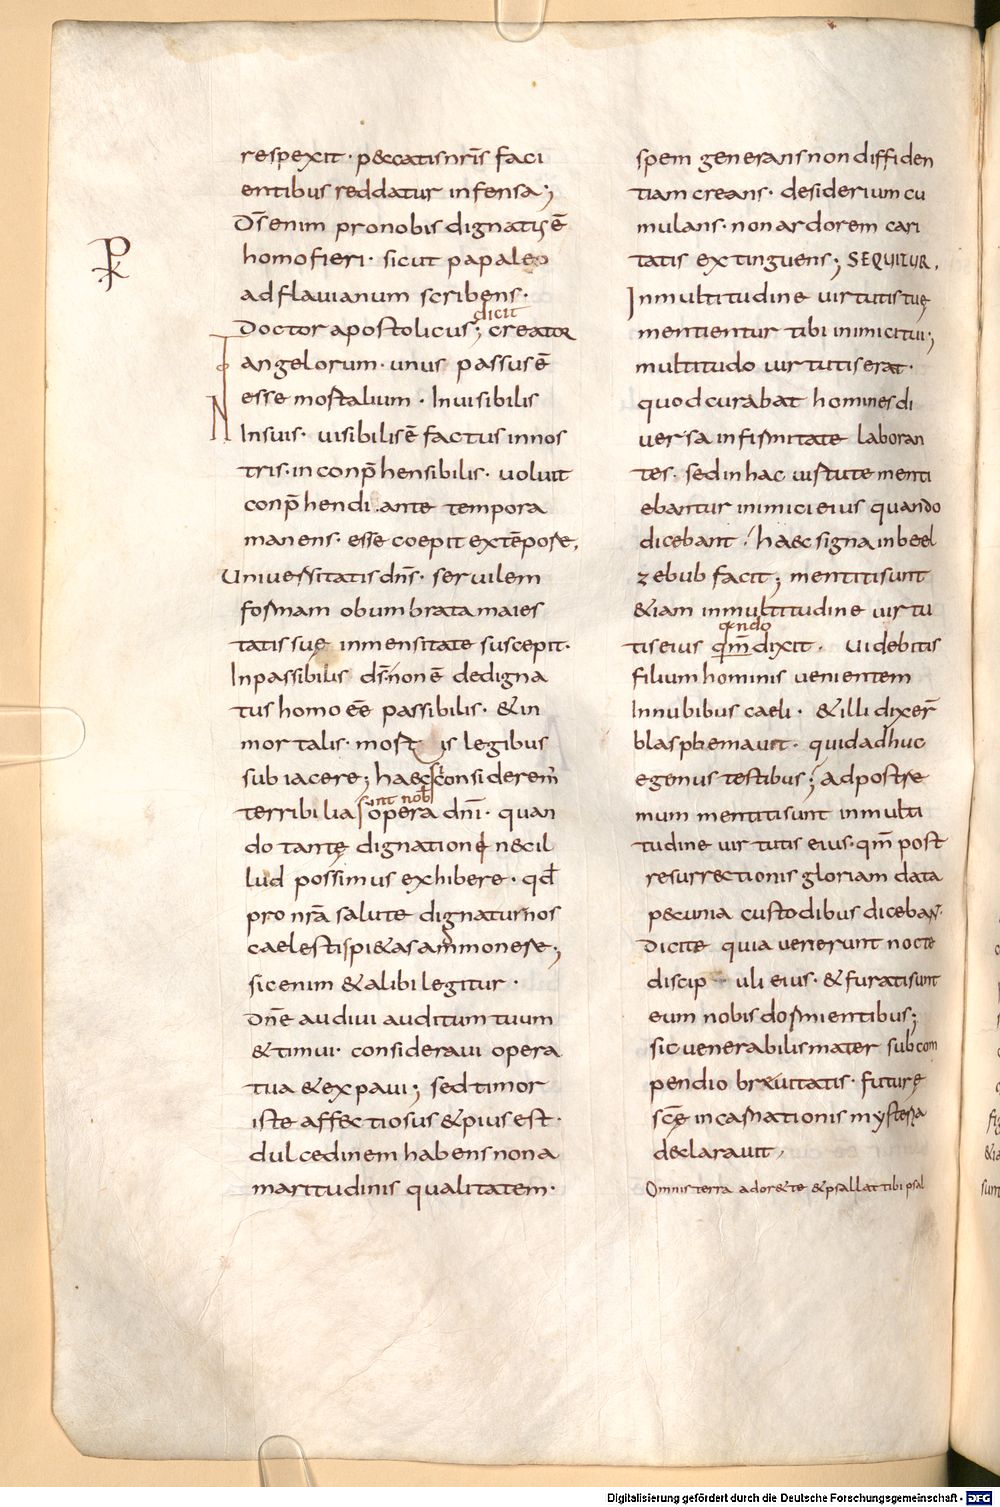 respexit · peccatis nr̄is faci
entibus reddatur infensa;
Ds̄ enim pro nobis dignatus ē
homo fieri · sicut papa leo
ad flavianum scribens ·
dicit
Doctor apostolicus; creator
angelorum · unus passus ē
esse mortalium · Invisibilis
IN
In suis · visibilis ē factus in nos
tris · inconp̄hensibilis · voluit
conp̄hendi · ante tempora
manens · esse coepit ex tēpore,
Universitatis dn̄s · servilem
formam obumbrata maies
tatis suę inmensitate suscepit ·
Inpassibilis ds̄ · non ē dedigna
tus homo eē passibilis · & in
mortalis · mort is legibus
subiacere; haec si considerem̄
sunt nob̄
terribilia opera dn̄i · quan
do tantę dignatione nec il
lud possimus exhibere · qd̄
pro nr̄a salute dignatur nos
caelesti pietas ammonere;
sic enim & alibi legitur ·
Dn̄e audivi auditum tuum
& timui · consideravi opera
tua & expavi; sed timor
iste affectiosus & pius est ·
dulcedinem habens non a
maritudinis qualitatem ·
spem generans non diffiden
tiam creans · desiderium cu
mulans · non ardorem cari
tatis extinguens; SEQUITUR,
In multitudine virtutis tuę
mentientur tibi inimici tui;
multitudo virtutis erat ·
quod curabat homines di
versa infirmitate laboran
tes · sed in hac virtute menti
ebantur inimici eius quando
dicebant · haec signa in beel
zebub facit; mentiti sunt
&iam in multitudine virtu
qndo
tis eius qm̄ dixit · Videbitis
filium hominis venientem
In nubibus caeli · & illi dixer̄
blasphemavit · quid adhuc
egemus testibus; ad postre
mum mentiti sunt in multi
tudine virtutis eius · qm̄ post
resurrectionis gloriam data
pecunia custodibus diceban ·
Dicite quia venerunt nocte
discip uli eius · & furati sunt
eum nobis dormientibus;
sic venerabilis mater sub com
pendio brevitatis · futurę
scē incarnationis mysteria
declaravit,
Omnis terra ador&te & psallat tibi psal
Digitalisierung gefördert durch die Deutsche Forschungsgemeinschaft - DFG